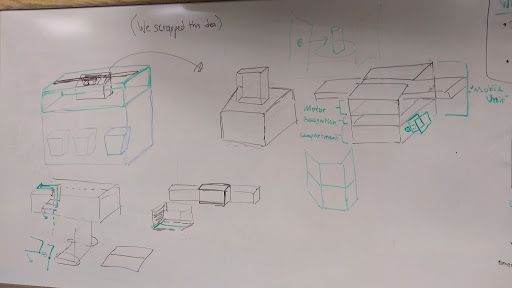 (We scrapped this idea)
Motor
Navigation
compartment
"Mobile
Unit"